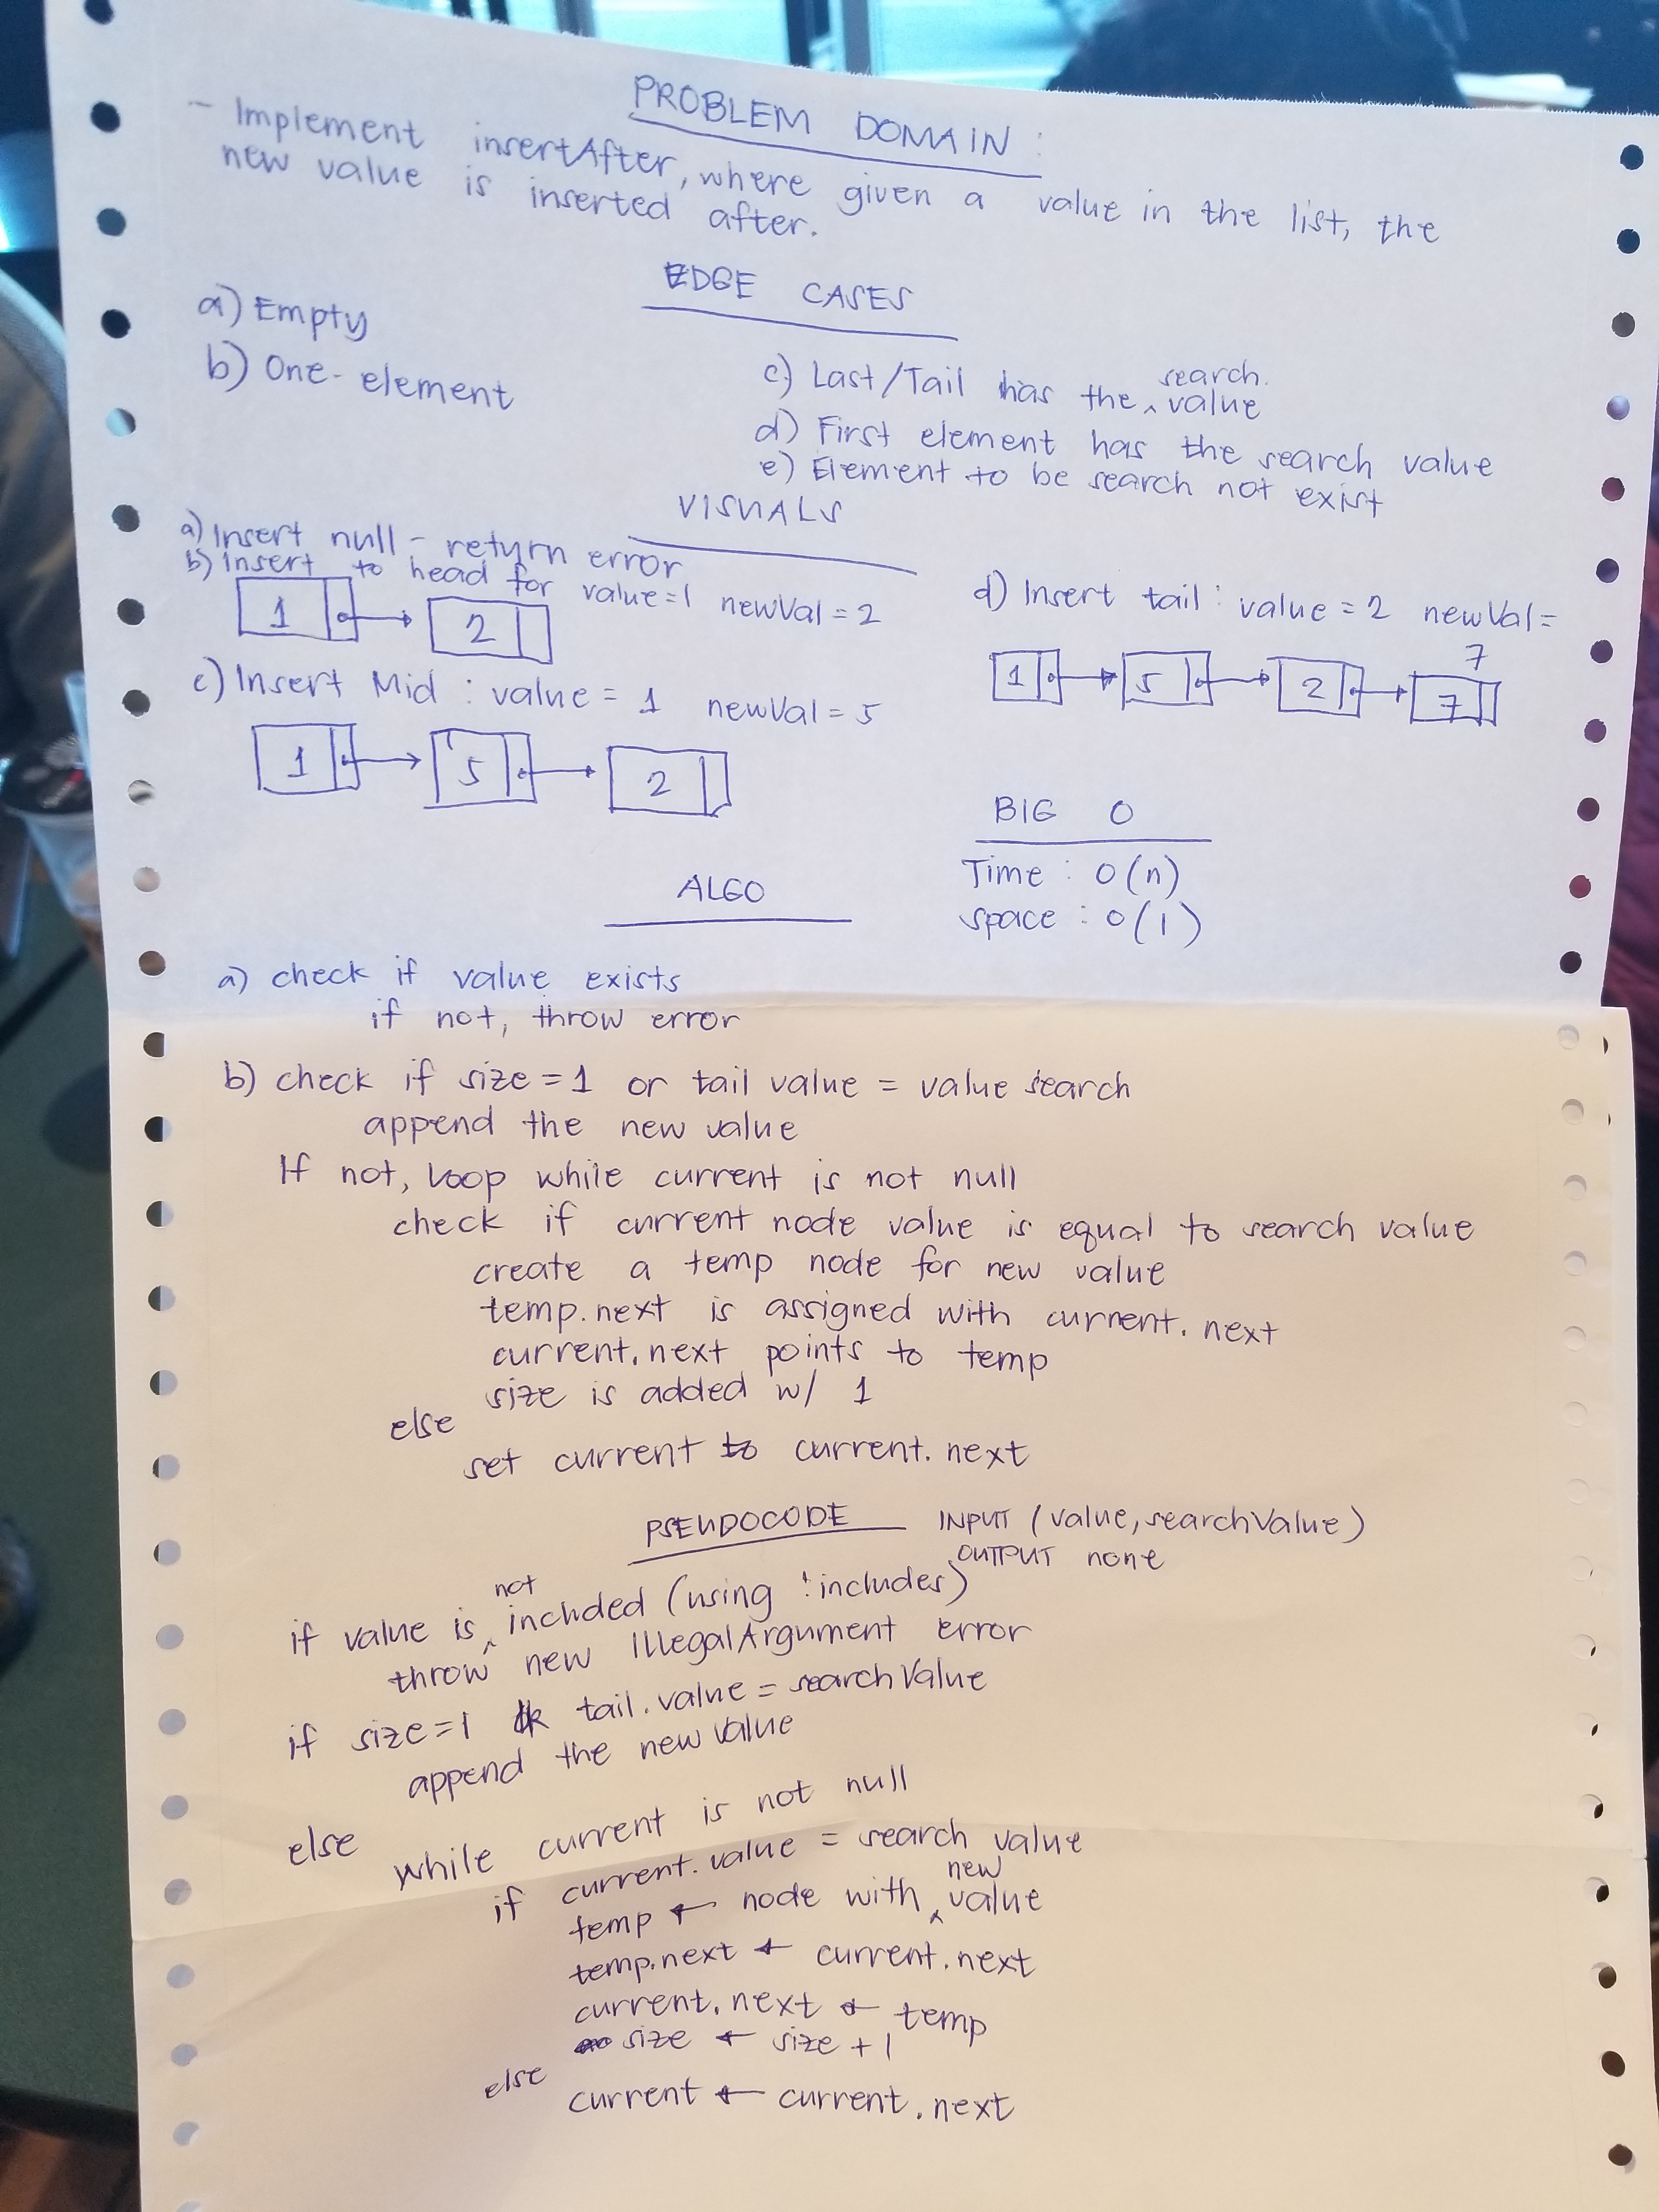 PROBLEM DOMAIN:
- Implement insertAfter, where given a value in the list, the
new value is inserted after.
EDGE CASES
a) Empty
b) One-element
c) Last/Tail has the search value
d) First element has the search value
e) Element to be search not exist
VISUALS
a) Insert null - return error
b) Insert to head for value=1 newVal=2
1 2
c) Insert Mid : value = 1 newVal = 5
1 5 2
d) Insert tail : value = 2 newVal =
7
1 5 2 7
BIG O
Time : O(n)
space : O(1)
ALGO
a) check if value exists
if not, throw error
b) check if size = 1 or tail value = value search
append the new value
If not, loop while current is not null
check if current node value is equal to search value
create a temp node for new value
temp.next is assigned with current.next
current.next points to temp
size is added w/ 1
else
set current to current.next
PSEUDOCODE
INPUT (value, searchValue)
OUTPUT none
if value is not included (using !includes)
throw new IllegalArgument error
if size=1 tail.value = searchValue
append the new value
else
while current is not null
if current.value = search value
temp ← node with new value
temp.next ← current.next
current.next ← temp
size ← size + 1
else
current ← current.next